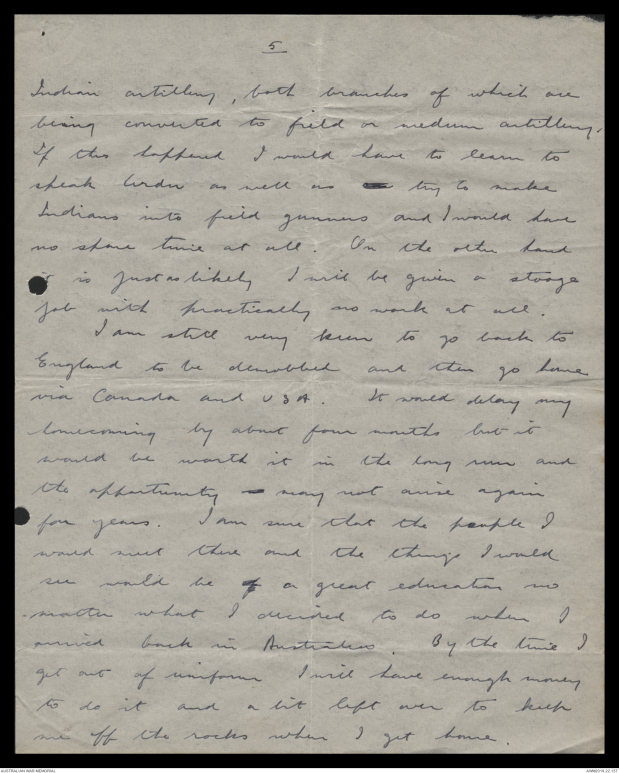 5
Indian artillery, both branches of which are
being converted to field or medium artillery.
If this happened I would have to learn to
speak Urdu as well as try to make
Indians into field gunners and I would have
no spare time at all. On the other hand
it is just as likely I will be given a stooge
job with practically no work at all.
I am still very keen to go back to
England to be demobbed and then go home
via Canada and USA. It would delay my
homecoming by about four months but it
would be worth it in the long run and
the opportunity may not arise again
for years. I am sure that the people I
would meet there and the things I would
see would be a great education no
matter what I decided to do when I
arrived back in Australia. By the time I
get out of uniform I will have enough money
to do it and a bit left over to keep
me off the rocks when I get home.
AUSTRALIAN WAR MEMORIAL